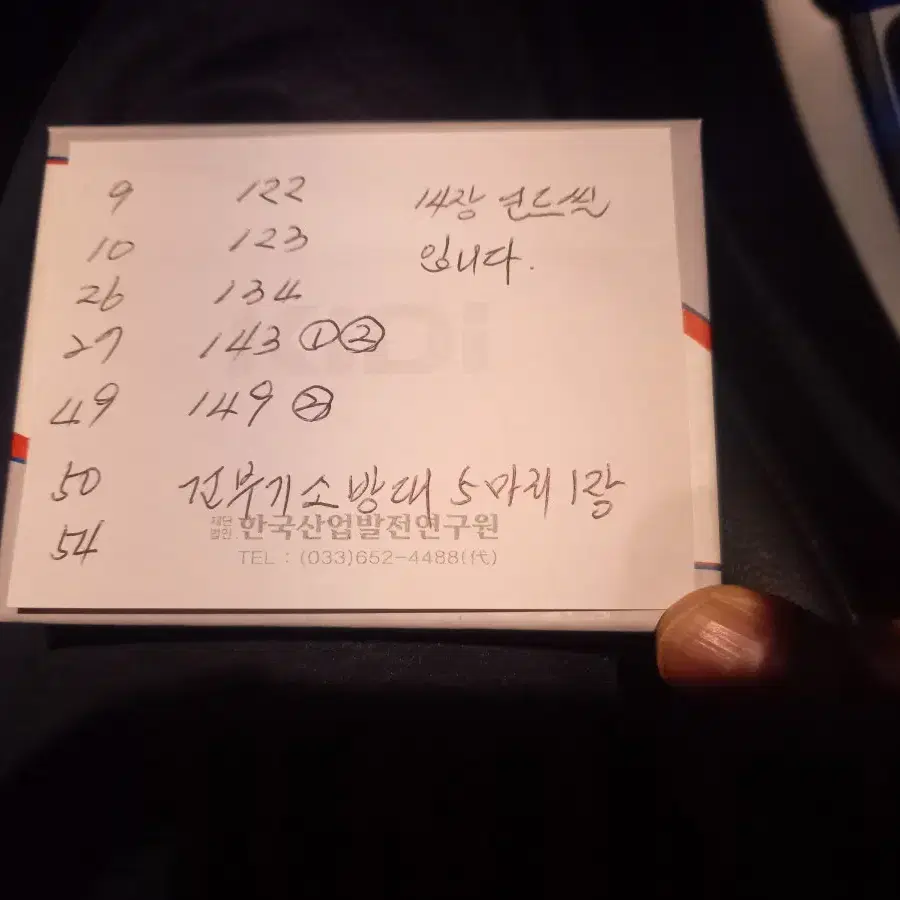 9 122 14장 연드씰
10 123 입니다.
26 134
27 143 ①②
49 149 ②
50 전부기소방대 5마리 1장
54
재단법인 한국산업발전연구원
TEL : (033)652-4488(代)